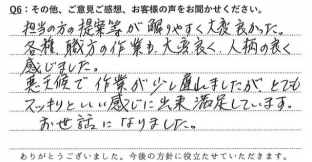 Q6：その他、ご意見ご感想、お客様の声をお聞かせください。
担当の方の提案等が解りやすく大変良かった。
各種、職方の作業も大変良く、人柄の良く
感じました。
悪天候で作業が少し直しましたがとても
スッキリといい感じに出来満足しています。
お世話になりました。
ありがとうございました。今後の方針に役立たせていただきます。